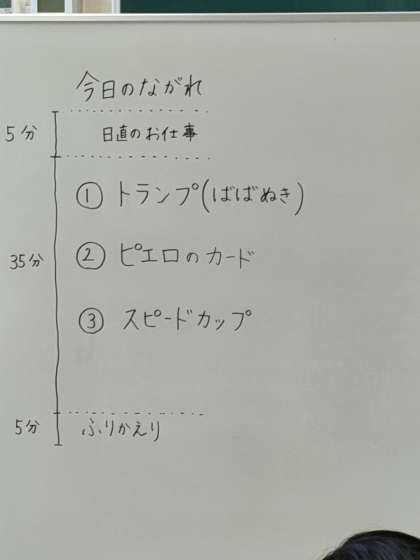 今日のながれ
5分
日直のお仕事
① トランプ(ばばぬき)
35分
② ピエロのカード
③ スピードカップ
5分
ふりかえり